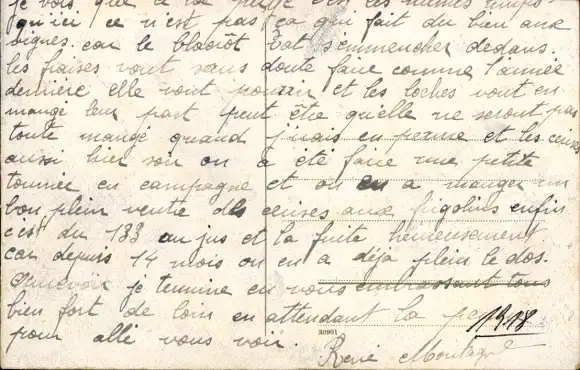 je vois que ce
qu'ici ce n'est pas ça qui fait du bien aux
vignes. car le blacrot vat s'emmencher dedans.
les fraises vont sans doute faire comme l'année
dernière elle vont pourrir et les loches vont en
mangé leur part peut être qu'elle ne seront pas
toute mangé quand j'irais en perme et les cerises
aussi hier soir on a été faire une petite
tournée en campagne et on en a manger un
bon plein ventre des cerises aux figolins enfin
c'est du 133 au jus et la fuite heureusement
car depuis 14 mois on en a déja plein le dos.
je termine en vous embrassant tous
bien fort de loin en attendant la perme
pour allé vous voir.
1918
30961
René Montagne